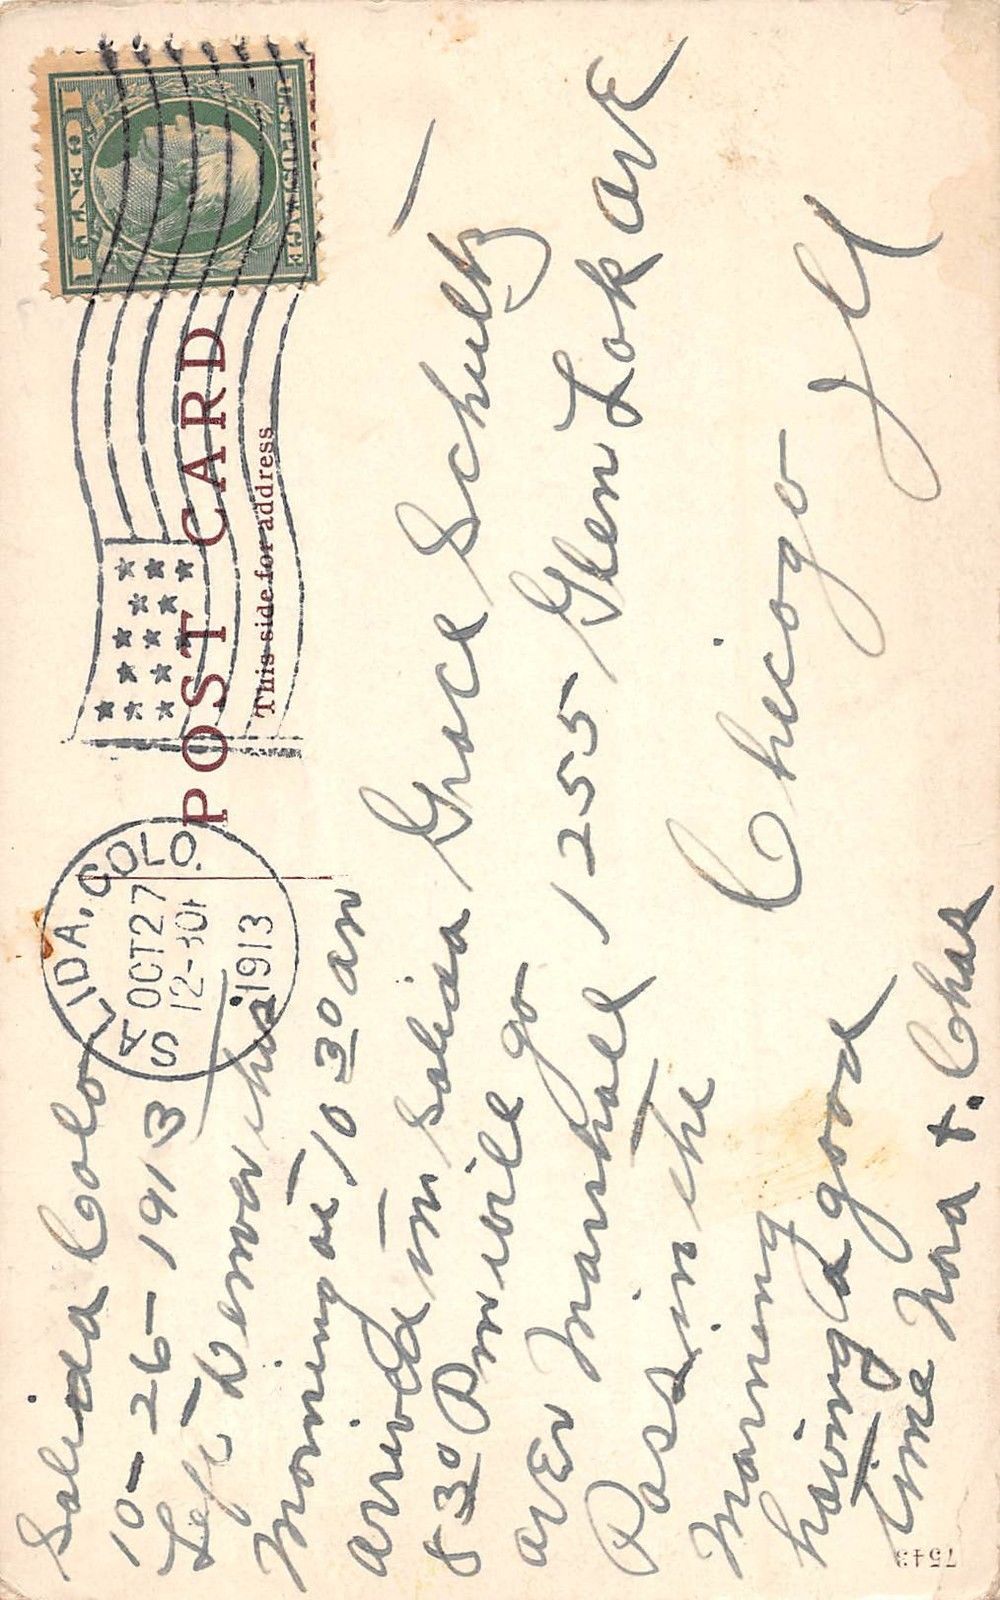 Salida Colo
10-26-1913
Left Denver this
Morning at 10 30 am
arrived in Salida
8 30 Pm will go
over Marshall
Pass in the
Morning
having a good
time Nora + Chas
SALIDA, COLO.
OCT 27
12-30
1913
U.S. POSTAGE
1 CENT 1
POST CARD
This side for address
Grace Schultz
1255 Glen Lak ave
Chicago
Ill
7543